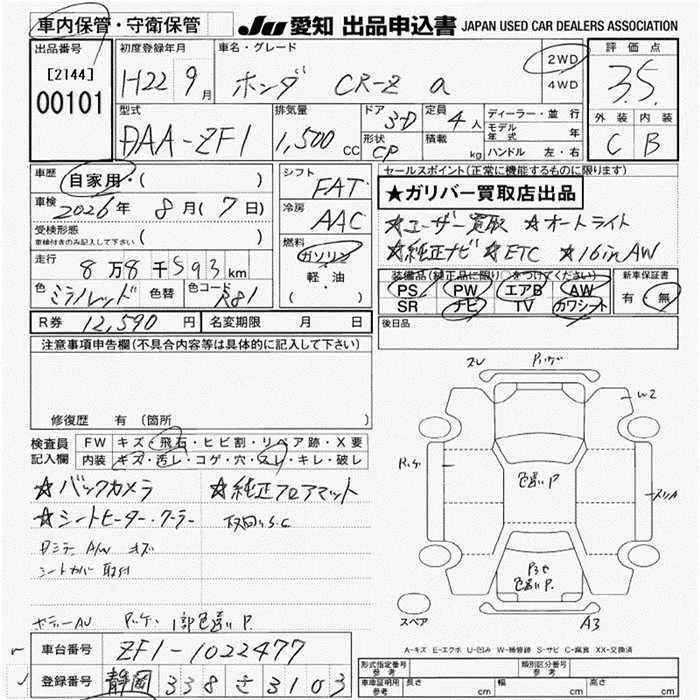 車内保管・守衛保管 JU 愛知 出品申込書 JAPAN USED CAR DEALERS ASSOCIATION
出品番号 [2144] 00101
初度登録年月 H22 9月
車名・グレード ホンダ CR-Z α
2WD 4WD
評価点 3.5
外装 内装
C B
型式 DAA-ZF1
排気量 1,500 CC
ドア 3-D 形状 CP
定員 4人 積載 kg
ディーラー・並行
モデル年式 年
ハンドル 左・右
車歴 自家用・( )
車検 2026年 8月(7日)
受検形態 車検付きのみ記入して下さい ( )
走行 8万8千593km
色 ミラノレッド 色替 色コード R81
R券 12,590円 名変期限 月 日
シフト FAT
冷房 AAC
燃料 ガソリン・軽・油 ( )
セールスポイント(正常に機能するものに限ります)
★ガリバー買取店出品
☆ユーザー買取 ☆オートライト
☆純正ナビ ☆ETC ☆16inAW
装備品(純正品に限り○をつけてください)
PS PW エアB AW
SR ナビ TV カワシート
新車保証書 有・無
後日品
注意事項申告欄(不具合内容等は具体的に記入して下さい)
修復歴 有 (箇所 )
検査員記入欄
FW キズ・飛石・ヒビ割・リペア跡・X要
内装 キズ・汚レ・コゲ・穴・スレ・キレ・破レ
☆バックカメラ ☆純正フロアマット
☆シートヒーター・クーラー
シートカバー取付
ボディーAU 1部色違いP
スレ
W2
色違いP
色違いP.
A3
スペア
A-キズ E-エクボ U-凹み W-補修跡 S-サビ C-腐食 XX-交換済
車台番号 ZF1-1022477
登録番号 静岡 338 さ 3103
形式指定番号 参考 類別区分番号 参考
車庫証明用 参考 長さ cm 幅 cm 高さ cm